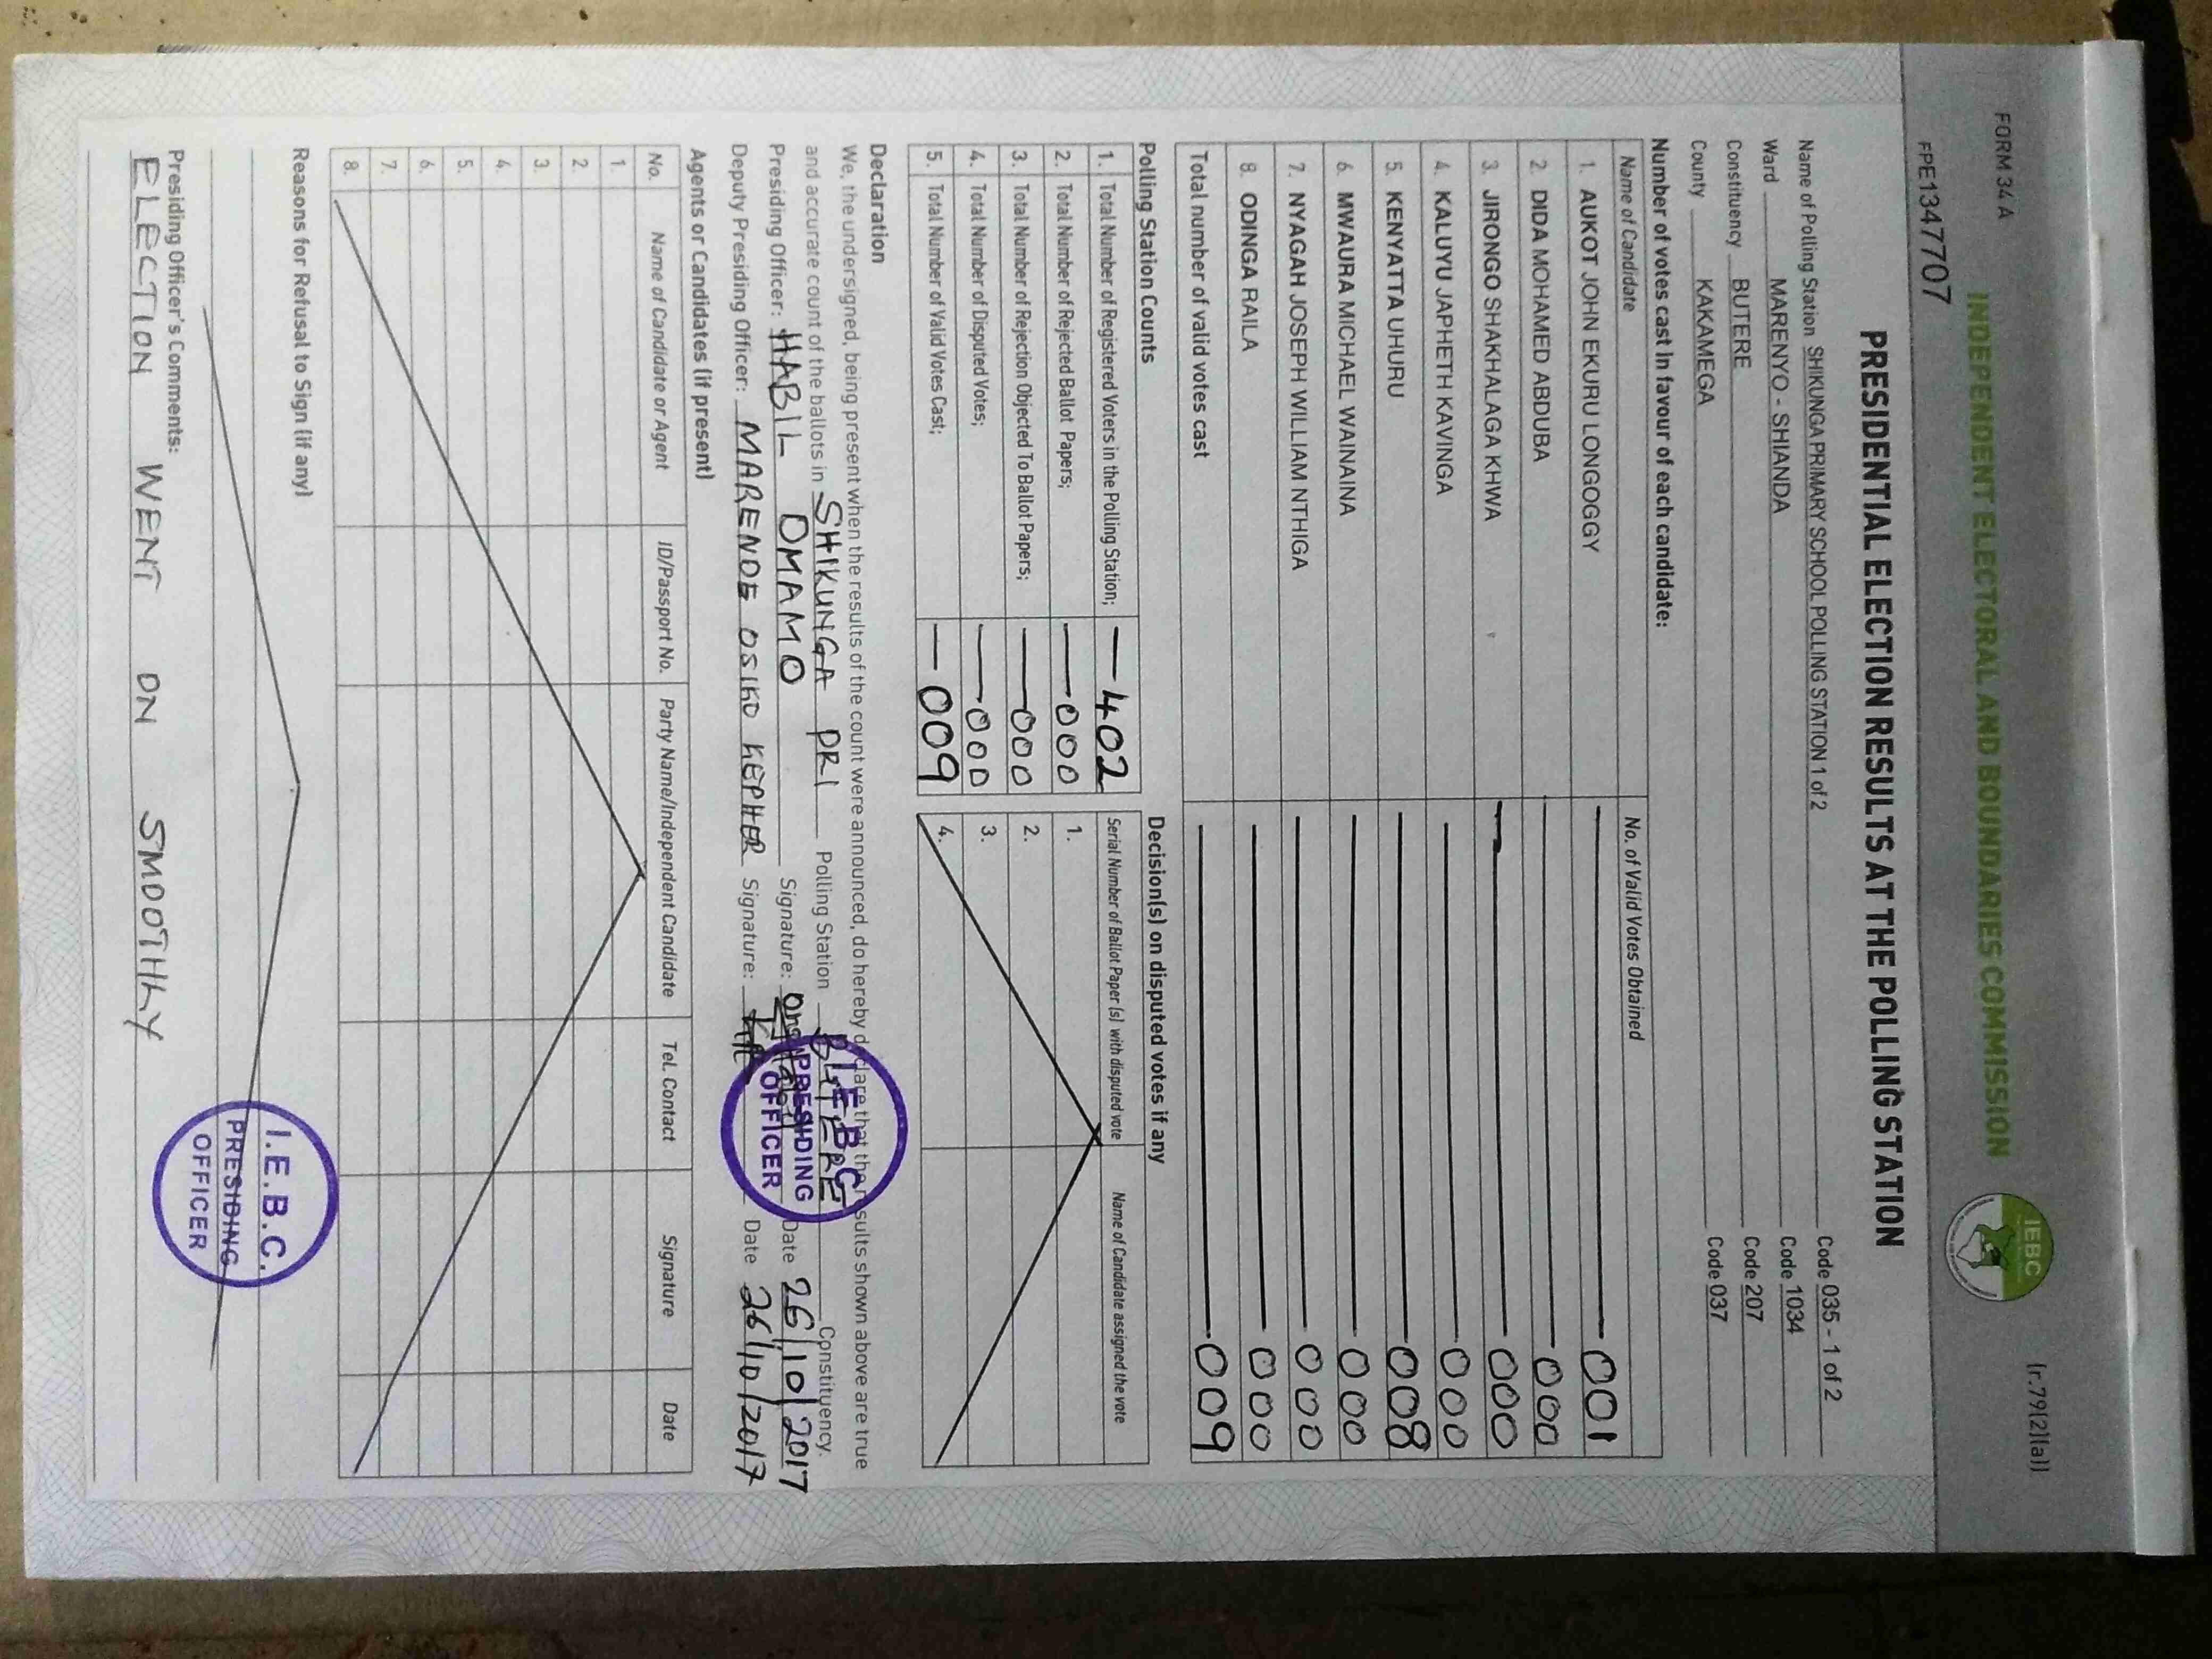 FORM 34 A
(r.79(2)(a))
INDEPENDENT ELECTORAL AND BOUNDARIES COMMISSION
IEBC
FPE1347707
PRESIDENTIAL ELECTION RESULTS AT THE POLLING STATION
Name of Polling Station SHIKUNGA PRIMARY SCHOOL POLLING STATION 1 of 2 Code 035 - 1 of 2
Ward MARENYO - SHIANDA Code 1034
Constituency BUTERE Code 207
County KAKAMEGA Code 037
Number of votes cast in favour of each candidate:
Name of Candidate No. of Valid Votes Obtained
1. AUKOT JOHN EKURU LONGOGGY 001
2. DIDA MOHAMED ABDUBA 000
3. JIRONGO SHAKHALAGA KHWA 000
4. KALUYU JAPHETH KAVINGA 000
5. KENYATTA UHURU 008
6. MWAURA MICHAEL WAINAINA 000
7. NYAGAH JOSEPH WILLIAM NTHIGA 000
8. ODINGA RAILA 000
Total number of valid votes cast 009
Polling Station Counts
1. Total Number of Registered Voters in the Polling Station; 402
2. Total Number of Rejected Ballot Papers; 000
3. Total Number of Rejection Objected To Ballot Papers; 000
4. Total Number of Disputed Votes; 000
5. Total Number of Valid Votes Cast; 009
Decision(s) on disputed votes if any
Serial Number of Ballot Paper (s) with disputed vote Name of Candidate assigned the vote
1.
2.
3.
4.
Declaration
We, the undersigned, being present when the results of the count were announced, do hereby declare that the results shown above are true
and accurate count of the ballots in SHIKUNGA PRI Polling Station BUTERE Constituency.
Presiding Officer: HABIL OMAMO Signature: Date 26/10/2017
Deputy Presiding Officer: MARENDE OSIKO KEPHER Signature: Date 26/10/2017
I.E.B.C.
PRESIDING
OFFICER
Agents or Candidates (if present)
No. Name of Candidate or Agent ID/Passport No. Party Name/Independent Candidate Tel. Contact Signature Date
1.
2.
3.
4.
5.
6.
7.
8.
Reasons for Refusal to Sign (if any)
I.E.B.C.
PRESIDING
OFFICER
Presiding Officer's Comments:
ELECTION WENT ON SMOOTHLY